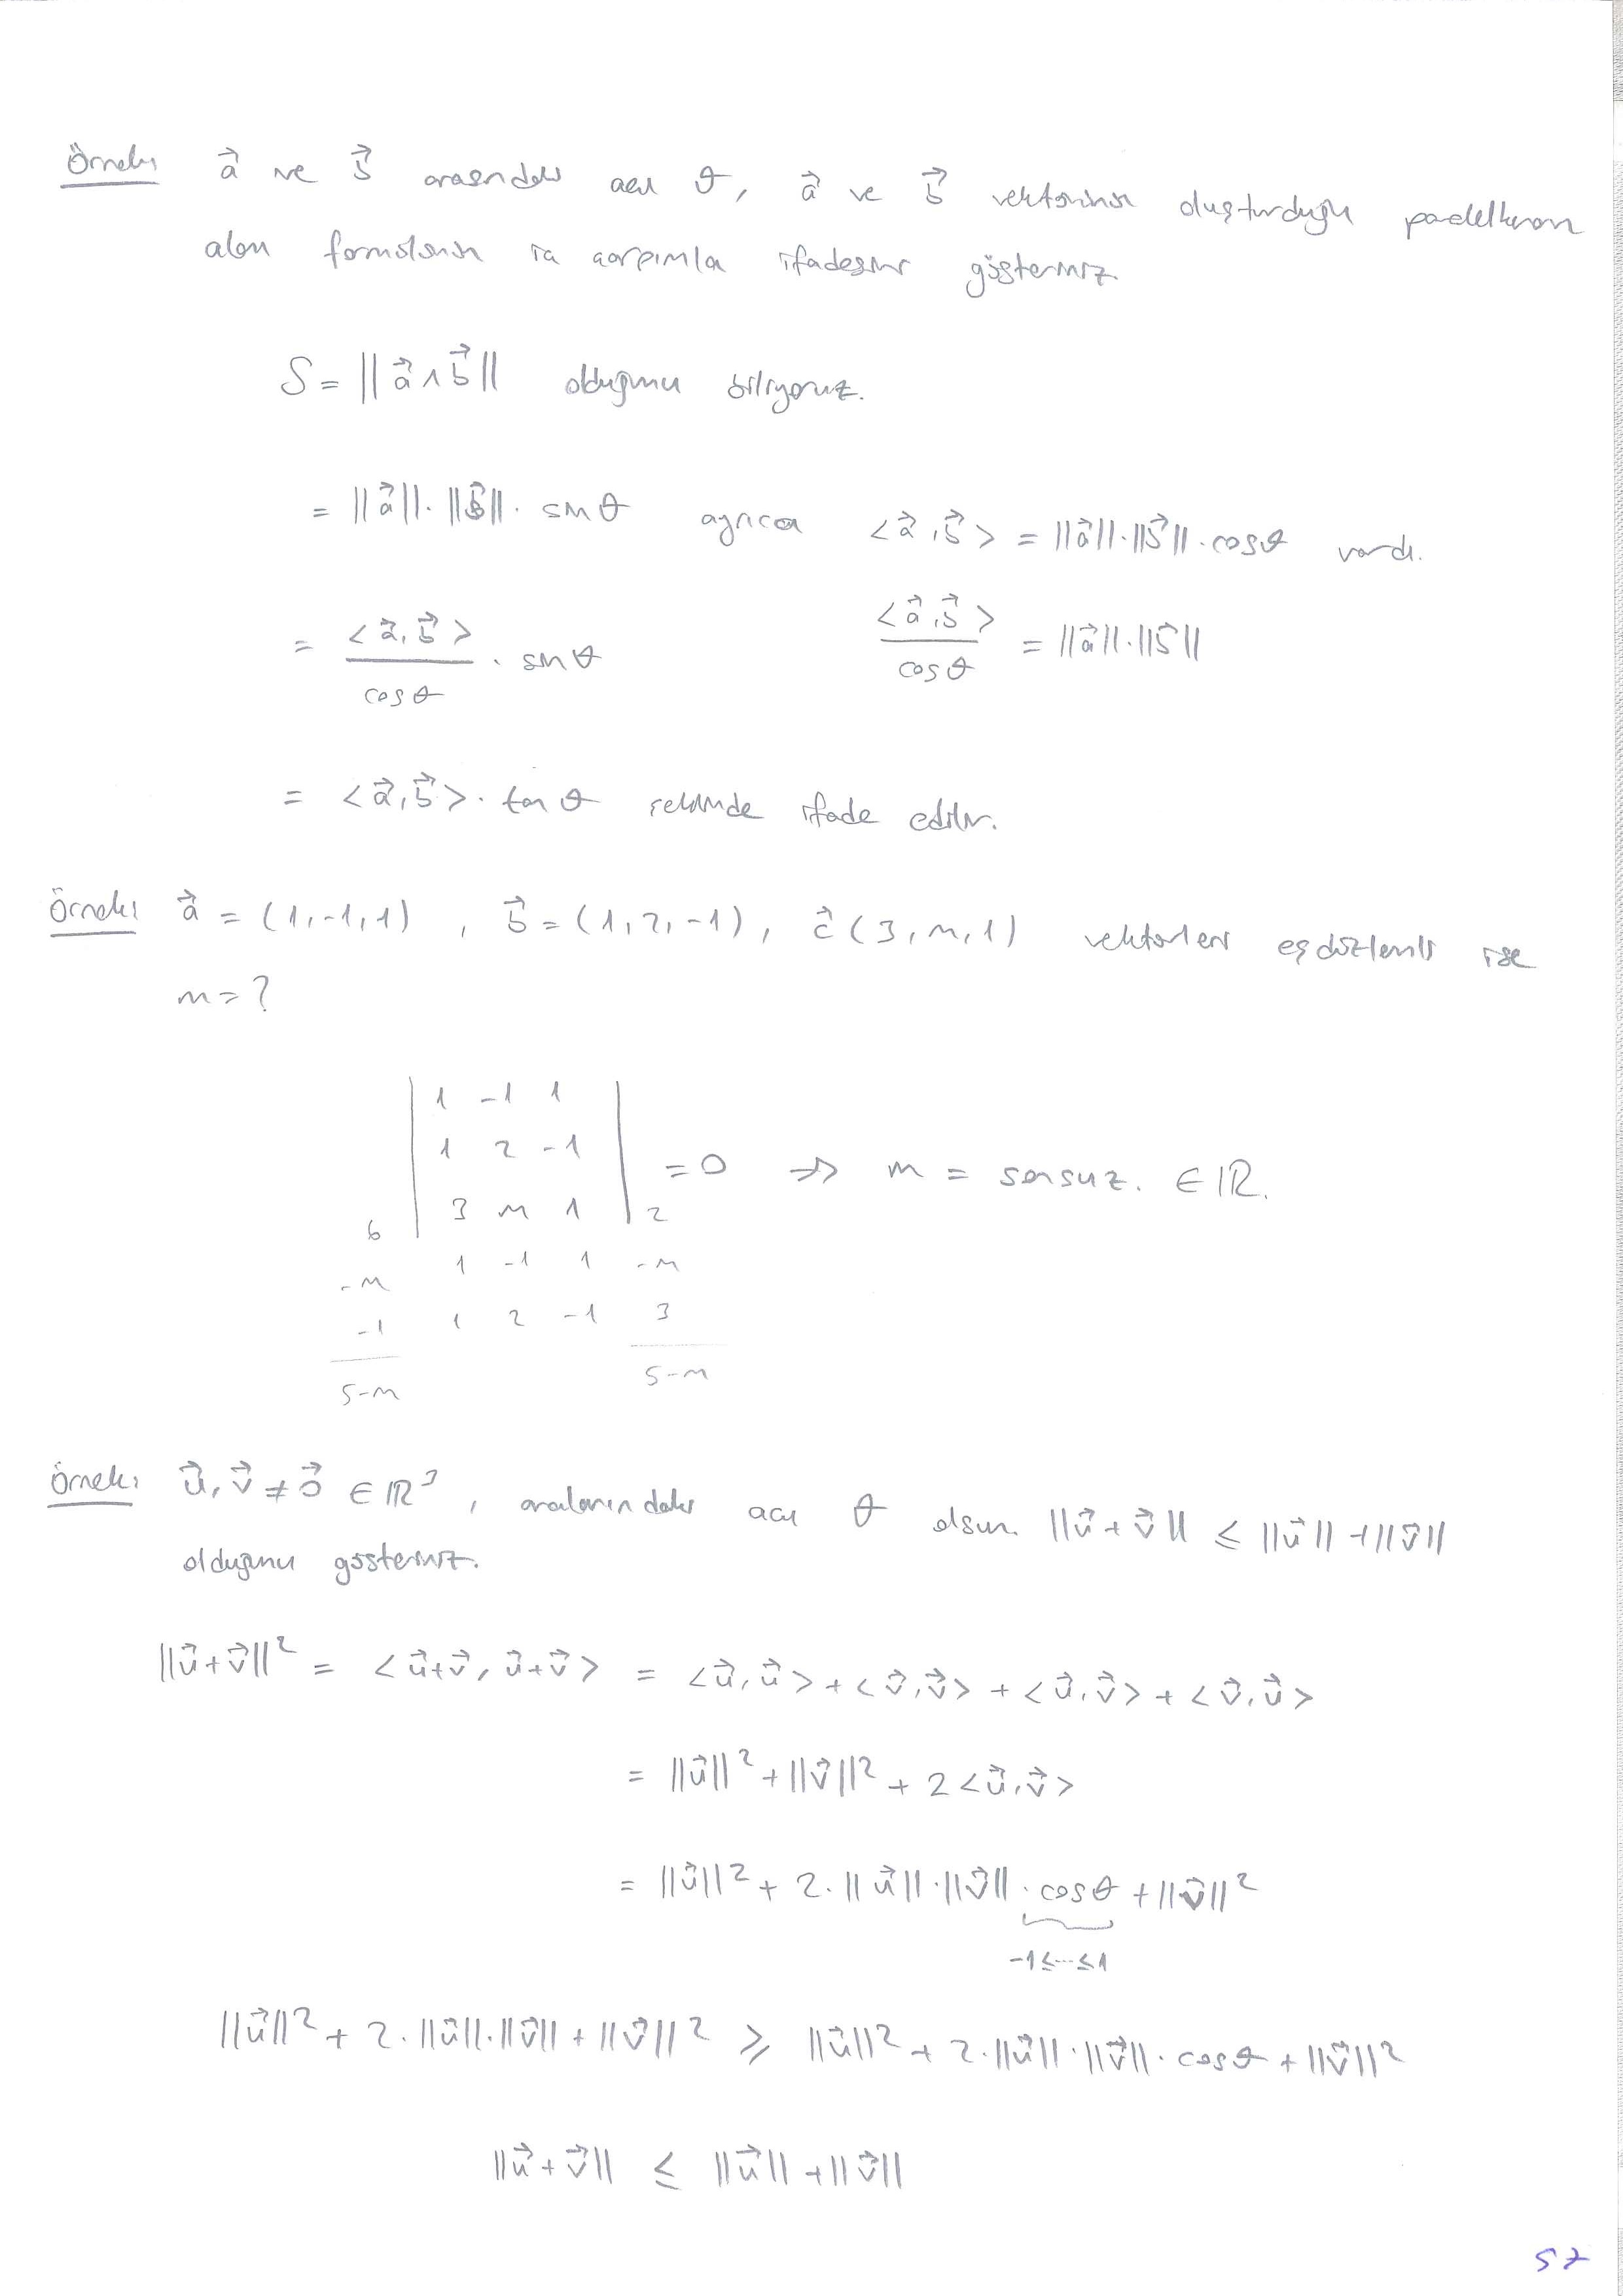 Örnek: a⃗ ve b⃗ arasındaki açı θ, a⃗ ve b⃗ vektörünün oluşturduğu paralelkenarın
alan formülünün iç çarpımla ifadesini gösteriniz.
S = ||a⃗ ∧ b⃗|| olduğunu biliyoruz.
= ||a⃗||·||b⃗||· sinθ ayrıca <a⃗,b⃗> = ||a⃗||·||b⃗||·cosθ vardı.
= <a⃗,b⃗> / cosθ · sinθ <a⃗,b⃗> / cosθ = ||a⃗||·||b⃗||
= <a⃗,b⃗>· tanθ şeklinde ifade edilir.
Örnek: a⃗ = (1,-1,1) , b⃗ = (1,2,-1), c⃗ (3,m,1) vektörleri eşdüzlemli ise
m = ?
1 -1 1
1 2 -1 = 0 ⇒ m = sonsuz. ∈ ℝ.
6 3 m 1 2
-m 1 -1 1 -m
-1 1 2 -1 3
5-m 5-m
Örnek: u⃗, v⃗ ≠ 0⃗ ∈ ℝ³ , aralarındaki açı θ olsun. ||u⃗ + v⃗|| ≤ ||u⃗|| + ||v⃗||
olduğunu gösteriniz.
||u⃗+v⃗||² = <u⃗+v⃗, u⃗+v⃗> = <u⃗,u⃗> + <v⃗,v⃗> + <u⃗,v⃗> + <v⃗,u⃗>
= ||u⃗||² + ||v⃗||² + 2<u⃗,v⃗>
= ||u⃗||² + 2·||u⃗||·||v⃗||·cosθ + ||v⃗||²
-1≤...≤1
||u⃗||² + 2·||u⃗||·||v⃗|| + ||v⃗||² ≥ ||u⃗||² + 2·||u⃗||·||v⃗||·cosθ + ||v⃗||²
||u⃗+v⃗|| ≤ ||u⃗|| + ||v⃗||
57